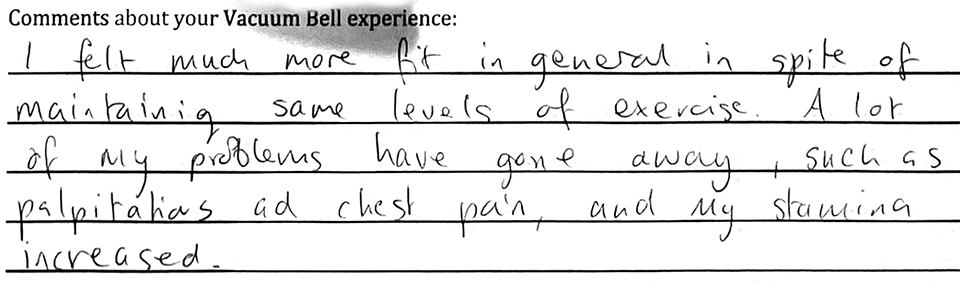 Comments about your Vacuum Bell experience:
I felt much more fit in general in spite of
maintainig same levels of exercise. A lot
of my problems have gone away, such as
palpitations ad chest pain, and my stamina
increased.